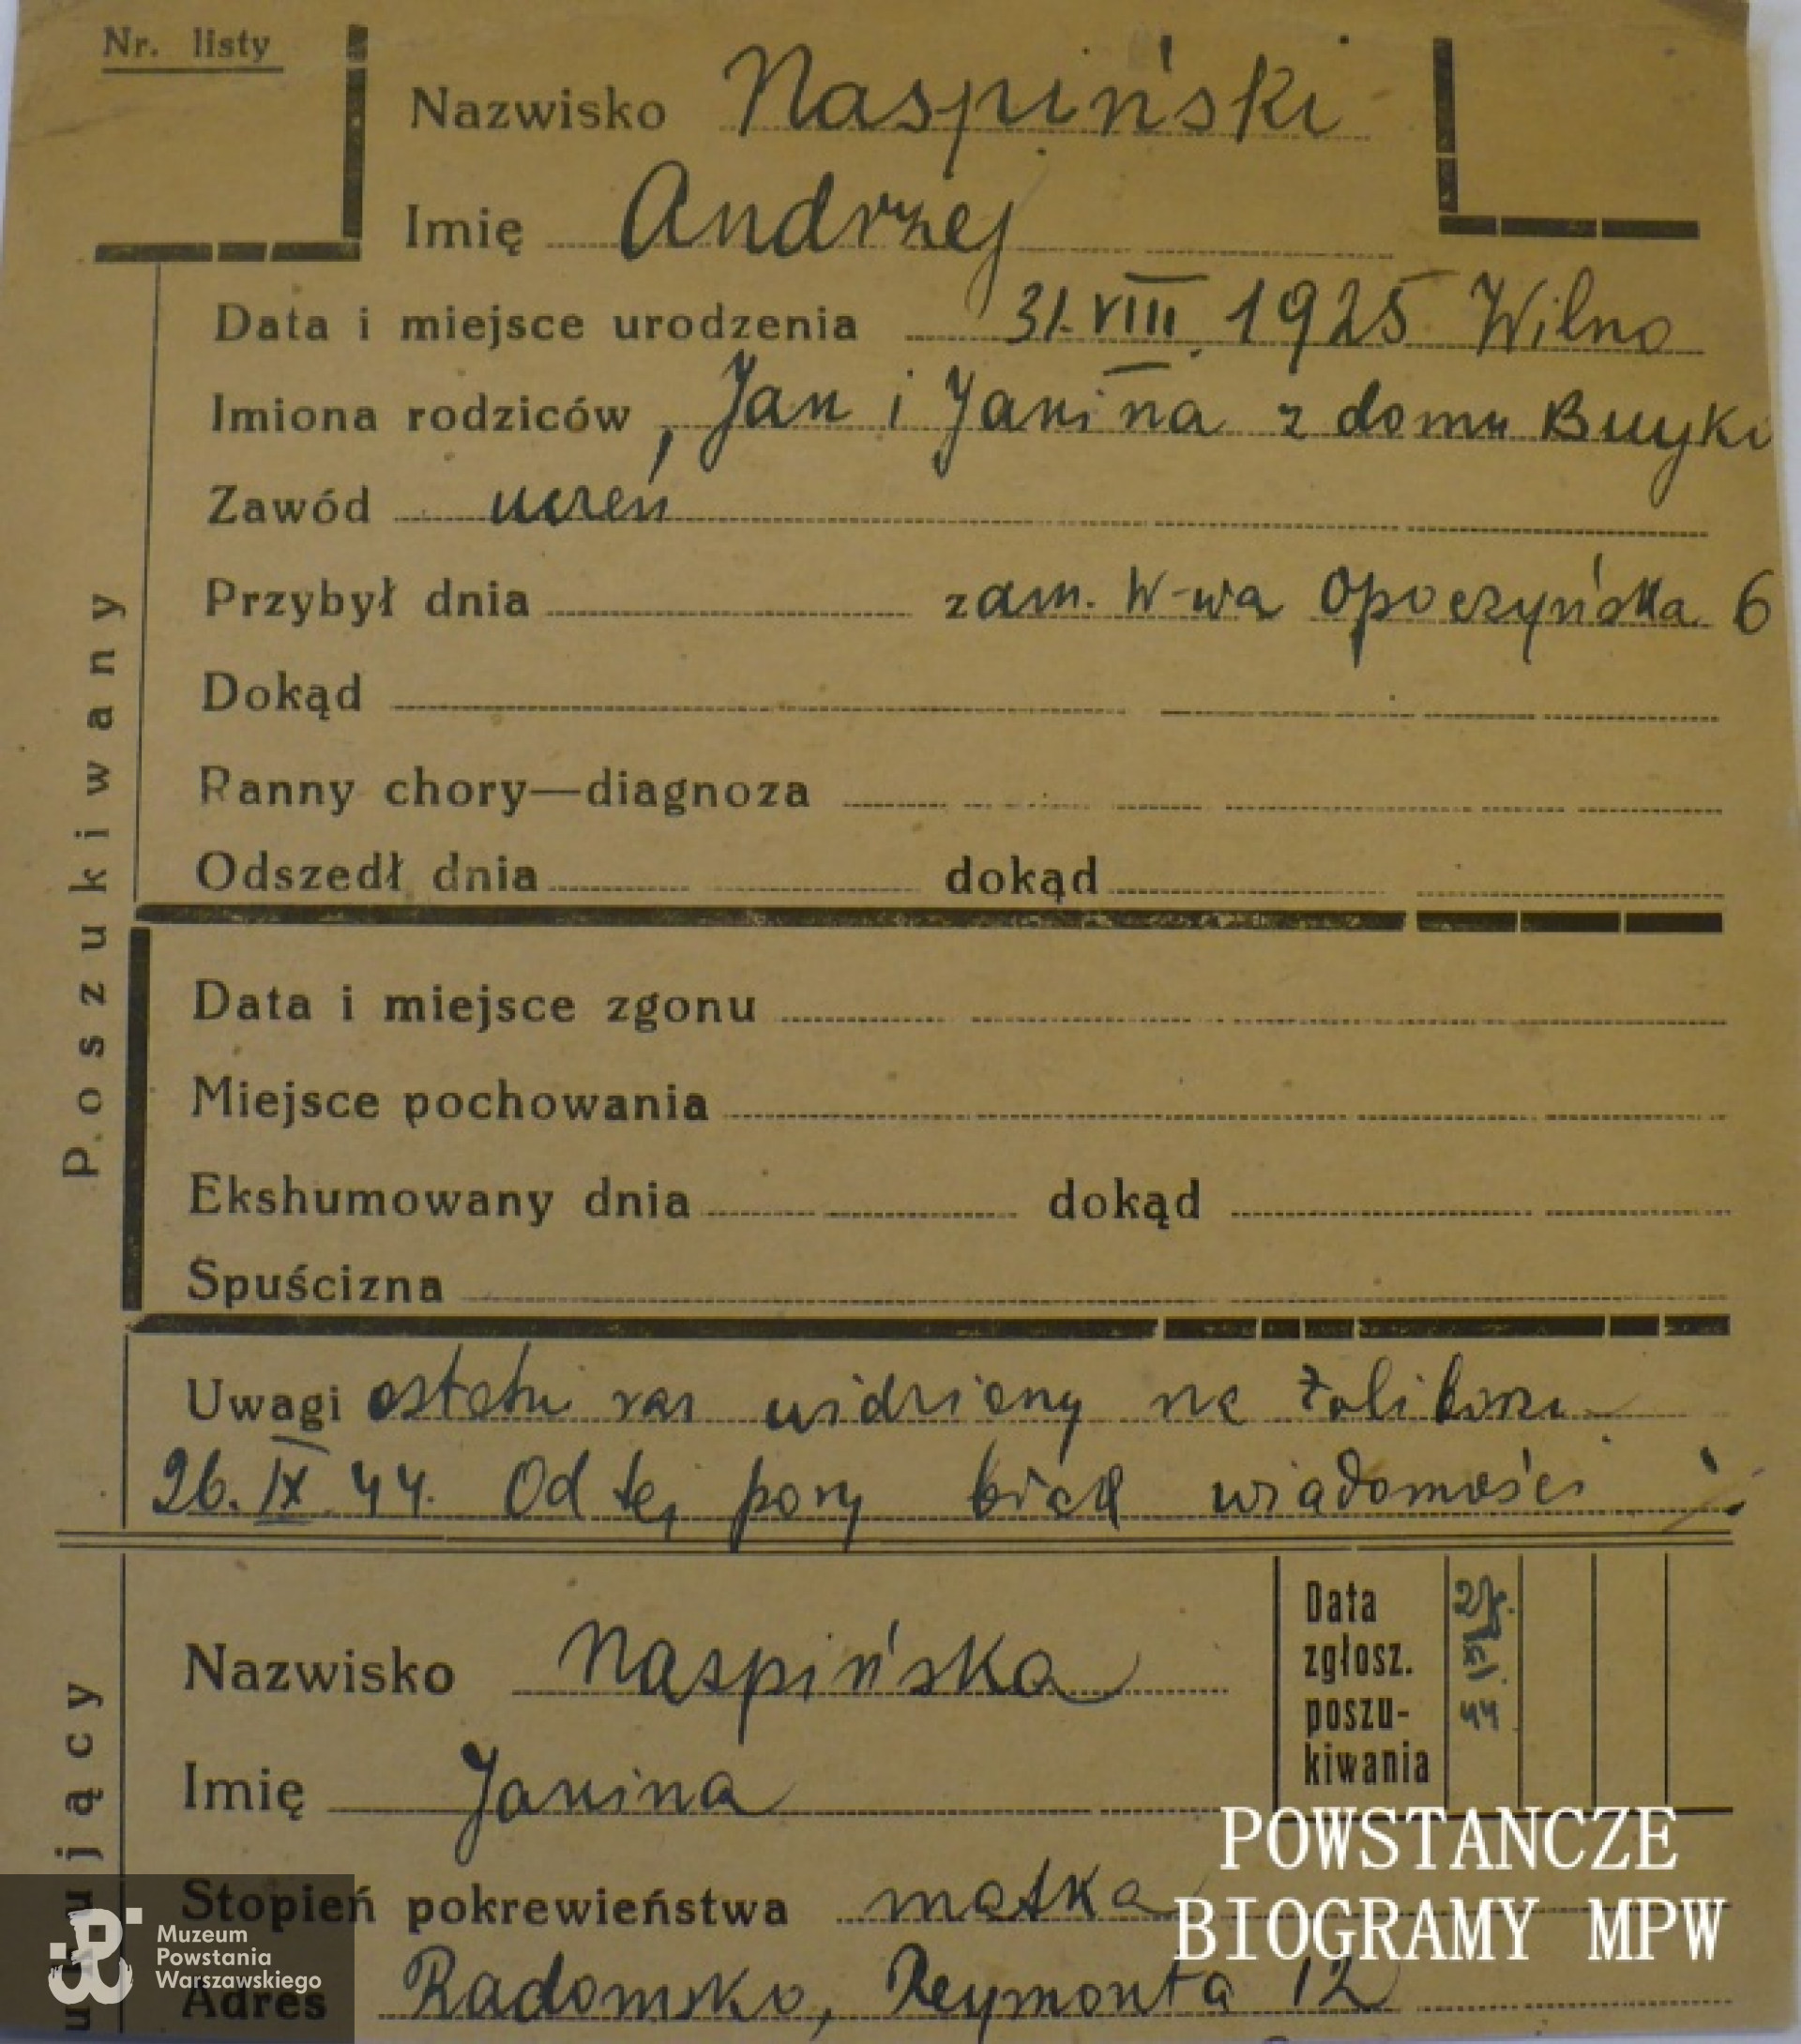 Nr. listy
Nazwisko Naspiński
Imię Andrzej
Data i miejsce urodzenia 31.VIII.1925 Wilno
Imiona rodziców Jan i Janina z domu
Zawód uczeń
Przybył dnia zam. W-wa Opoczyńska 6
Dokąd
Ranny chory—diagnoza
Odszedł dnia dokąd
Poszukiwany
Data i miejsce zgonu
Miejsce pochowania
Ekshumowany dnia dokąd
Spuścizna
Uwagi ostatni raz widziany na Żoliborzu
26.IX.44. Od tej pory brak wiadomości
Nazwisko Naspińska
Imię Janina
Data
zgłosz.
poszu-
kiwania
44
Stopień pokrewieństwa matka
Adres Radomsko, Reymonta 12
POWSTAŃCZE
BIOGRAMY MPW
Muzeum
Powstania
Warszawskiego